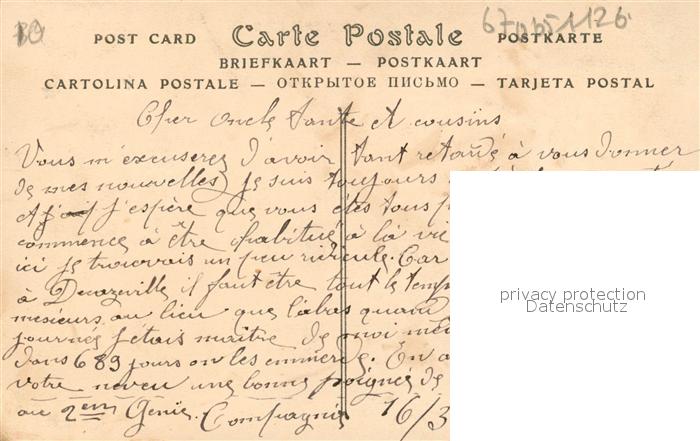 67 051 126
POST CARD Carte Postale POSTKARTE
BRIEFKAART — POSTKAART
CARTOLINA POSTALE — ОТКРЫТОЕ ПИСЬМО — TARJETA POSTAL
Cher Oncle Tante et cousins
Vous m'excuserez d'avoir tant retardé à vous donner
de mes nouvelles je suis toujours
et j'espère que vous êtes tous
commence à être habitué à la vie
ici je trouvais un peu ridicule. Car
à Decazeville il faut être tout le temp
mesieurs au lieu que labas quand
journée j'etais maitre de moi
dans 689 jours on les emmerde. On a
votre neveu une bonne poignée de
au 2em Génie. Compagnie 16/3
privacy protection
Datenschutz